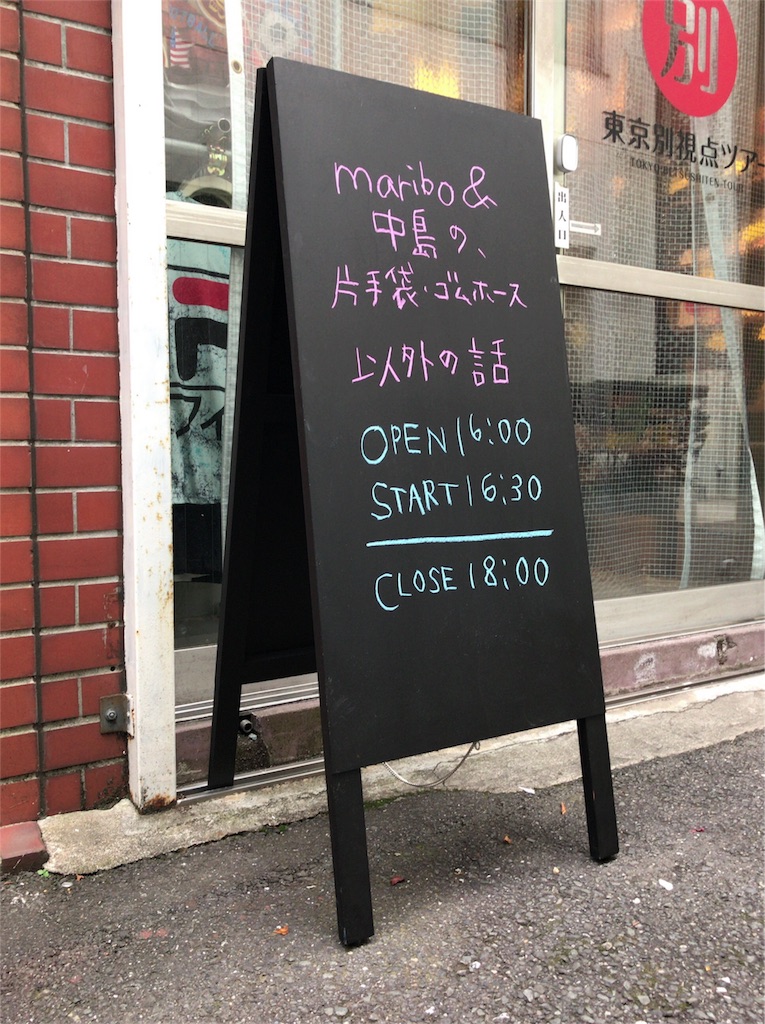 maribo &
中島の、
片手袋・ゴムホース
以外の話
OPEN 16:00
START 16:30
CLOSE 18:00
別
東京別視点ツアー
TOKYO BETSUSHITEN TOUR
出入口